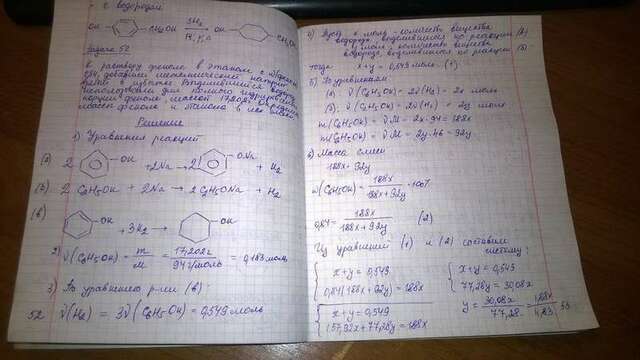 с водородом
OH CH₂OH 3H₂ CH₂OH
Задача 52
К раствору фенола в этаноле с
84% добавили металлический натрий
водород
использовали для полного гидрирования
порции фенола массой 17,202г.
массы фенола и этанола в
Решение
1) Уравнения реакций
(а) 2 OH + 2Na → 2 ONa + H₂
(б) 2 C₂H₅OH + 2Na → 2 C₂H₅ONa + H₂
(в) OH + 3H₂ → OH
2) ν(C₆H₅OH) = m/M = 17,202г/94г/моль = 0,183 моль
3) По уравнению р-ии (в)
ν(H₂) = 3ν(C₆H₅OH) = 0,549 моль
52
4) Пусть x моль - количество вещества
водорода, выделившегося по реакции (а)
y моль - количество вещества
водорода, выделившегося по реакции (б)
тогда x + y = 0,549 моль (1)
5) По уравнениям
(а) ν(C₆H₅OH) = 2ν(H₂) = 2x моль
(б) ν(C₂H₅OH) = 2ν(H₂) = 2y моль
m(C₆H₅OH) = ν·M = 2x·94 = 188x
m(C₂H₅OH) = ν·M = 2y·46 = 92y
6) Масса смеси
188x + 92y
ω(C₆H₅OH) = 188x/188x + 92y · 100%
0,84 = 188x/188x + 92y (2)
Из уравнений (1) и (2) составим
систему:
x + y = 0,549
0,84(188x + 92y) = 188x
x + y = 0,549
157,92x + 77,28y = 188x
x + y = 0,549
77,28y = 30,08x
y = 30,08x/77,28 =
53